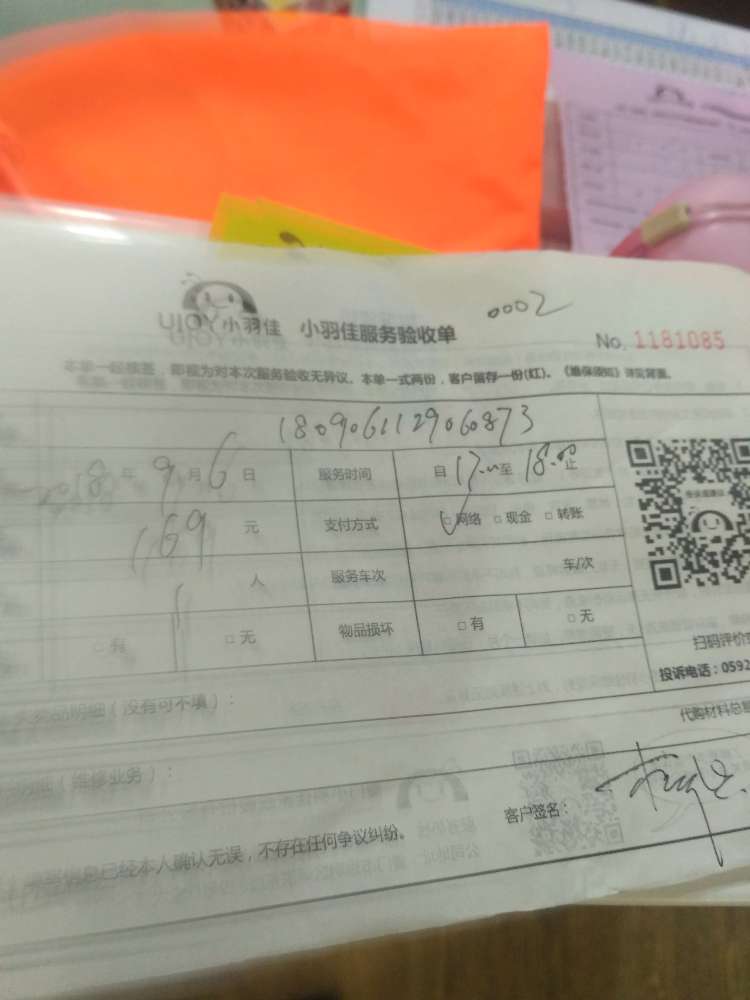 0002
UJOY小羽佳 小羽佳服务验收单
No. 1181085
本单一经核签,即视为对本次服务验收无异议。本单一式两份,客户留存一份(红)。《维保须知》详见背面。
1809061129060873
2018年9月6日 服务时间 自17:00至18:00止
169元 支付方式 □网络 □现金 □转账
1人 服务车次 车/次
□有 □无 物品损坏 □有 □无
扫码评价
投诉电话:0592
品明细(没有可不填):
代购材料总
(维修业务):
客户签名:
信息已经本人确认无误,不存在任何争议纠纷。